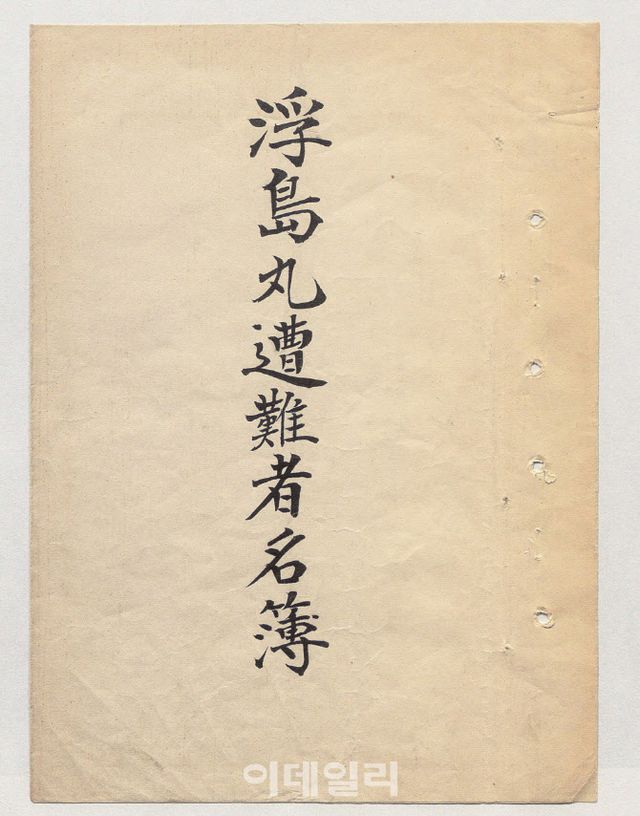 浮島丸遭難者名簿
이데일리